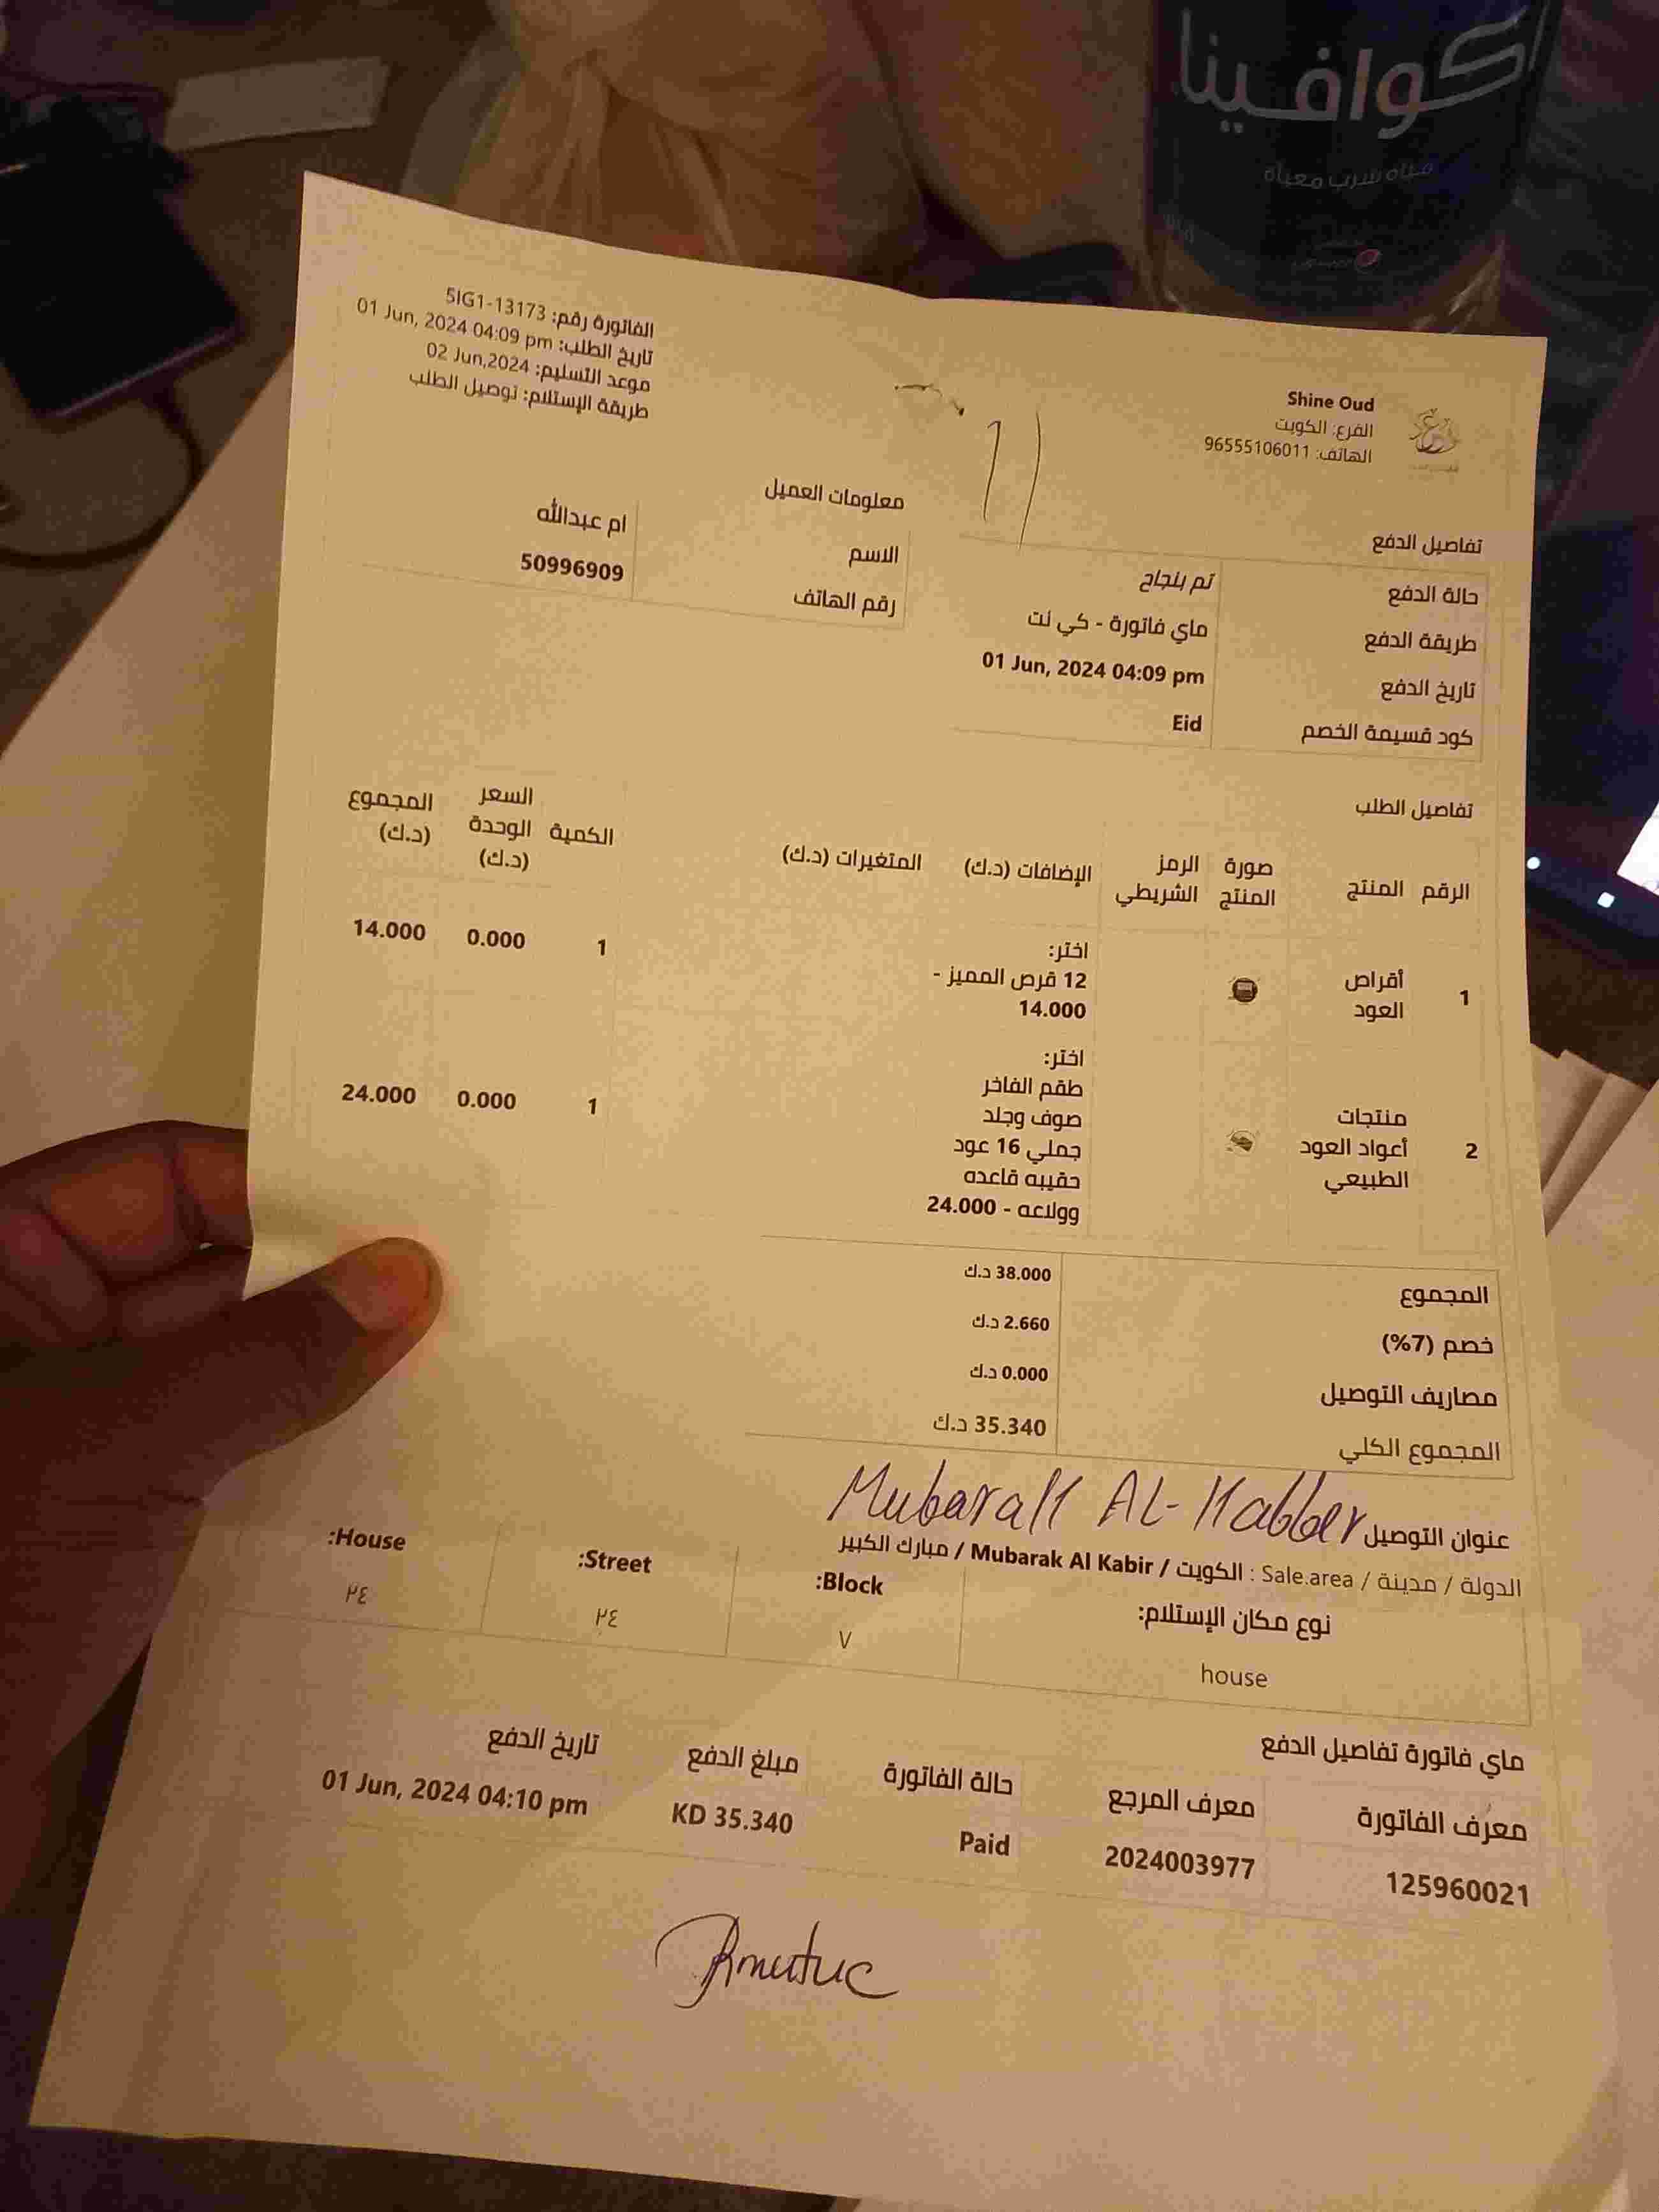 اكوافينا
مياه شرب معبأة
Shine Oud
الفرع: الكويت
الهاتف: 96555106011
الفاتورة رقم: 5IG1-13173
تاريخ الطلب: 01 Jun, 2024 04:09 pm
موعد التسليم: 02 Jun,2024
طريقة الإستلام: توصيل الطلب
تفاصيل الدفع
حالة الدفع تم بنجاح
طريقة الدفع ماي فاتورة - كي نت
تاريخ الدفع 01 Jun, 2024 04:09 pm
كود قسيمة الخصم Eid
معلومات العميل
الاسم ام عبدالله
رقم الهاتف 50996909
تفاصيل الطلب
الرقم المنتج صورة المنتج الرمز الشريطي الإضافات (د.ك) المتغيرات (د.ك) الكمية السعر الوحدة (د.ك) المجموع (د.ك)
1 أقراص العود اختر: 12 قرص المميز - 14.000 1 0.000 14.000
2 منتجات أعواد العود الطبيعي اختر: طقم الفاخر صوف وجلد جملي 16 عود حقيبه قاعده وولاعه - 24.000 1 0.000 24.000
المجموع 38.000 د.ك
خصم (7%) 2.660 د.ك
مصاريف التوصيل 0.000 د.ك
المجموع الكلي 35.340 د.ك
عنوان التوصيل Mubarak AL-Kabber
الدولة / مدينة / Sale.area : الكويت / Mubarak Al Kabir / مبارك الكبير
نوع مكان الإستلام: Block: Street: House:
house ٧ ٢٤ ٢٤
ماي فاتورة تفاصيل الدفع
معرف الفاتورة معرف المرجع حالة الفاتورة مبلغ الدفع تاريخ الدفع
125960021 2024003977 Paid KD 35.340 01 Jun, 2024 04:10 pm